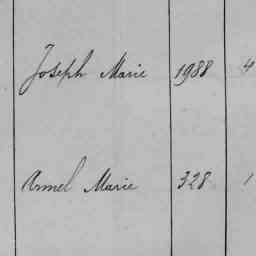 Joseph Marie 1988 4
Armel Marie 328 1